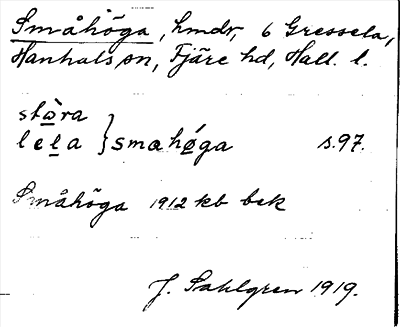 Småhöga, hmdr, 6 Gressela,
Hanhals sn, Fjäre hd, Hall. l.
stò̲ra
le̲l̲a } smahǿ̲ga s. 97.
Småhöga 1912 kb bek
J. Sahlgren 1919.